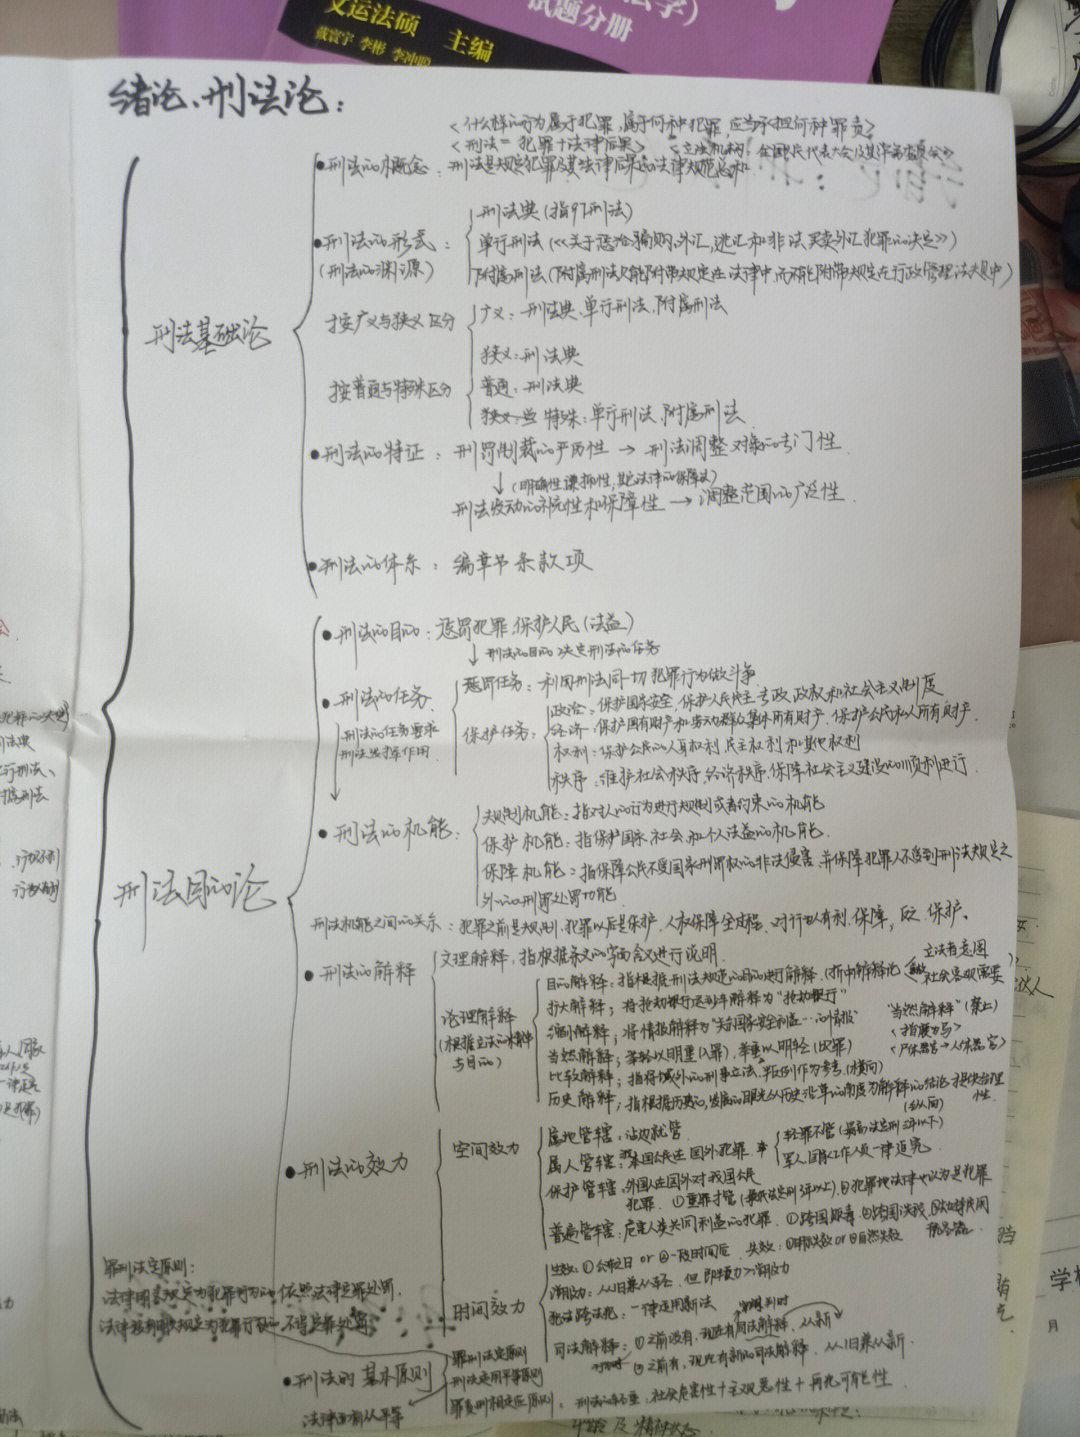 文运法硕 主编
戴寰宇 李彬 李冲聪
法学）
试题分册
绪论、刑法论：
<什么样的行为属于犯罪，属于何种犯罪，应当承担何种罪责>
<刑法＝犯罪＋法律后果> <立法机构：全国人民代表大会及其常务委员会>
刑法基础论
•刑法的概念：刑法是规定犯罪及其法律后果的法律规范总和
•刑法的形式：
(刑法的渊源)
刑法典(指97刑法)
单行刑法(《关于惩治骗购外汇，逃汇和非法买卖外汇犯罪的决定》)
附属刑法(附属刑法只能附带规定在法律中，而不能附带规定在行政管理法规中)
按广义与狭义区分
广义：刑法典、单行刑法、附属刑法
狭义：刑法典
按普通与特殊区分
普通：刑法典
特殊：单行刑法、附属刑法
•刑法的特征：刑罚制裁的严厉性 → 刑法调整对象的专门性
↓(明确性，谦抑性，其它法律的保障法)
刑法发动的补充性和保障性 → 调整范围的广泛性
•刑法的体系：编章节条款项
刑法目的论
•刑法的目的：惩罚犯罪，保护人民(法益)
↓刑法的目的决定刑法的任务
•刑法的任务
惩罚任务：利用刑法同一切犯罪行为做斗争
保护任务：
政治：保护国家安全，保护人民民主专政政权和社会主义制度
经济：保护国有财产和劳动群众集体所有财产，保护公民私人所有财产
权利：保护公民的人身权利，民主权利和其他权利
秩序：维护社会秩序，经济秩序，保障社会主义建设的顺利进行
刑法的任务要求
刑法发挥作用
•刑法的机能：
规制机能：指对人的行为进行规制或者约束的机能
保护机能：指保护国家、社会和个人法益的机能
保障机能：指保障公民不受国家刑罚权的非法侵害，并保障犯罪人不受到刑法规定之
外的刑罪处罚功能
刑法机能之间的关系：犯罪之前是规制，犯罪以后是保护，人权保障全过程，对行为人有利，保障，反之，保护。
•刑法的解释
文理解释，指根据条文的字面含义进行说明
论理解释
(根据立法的精神
与目的)
目的解释：指根据刑法规定的目的进行解释，(折中解释论
立法者意图
社会客观需要
扩大解释；将抢劫银行运钞车解释为“抢劫银行”
缩小解释；将情报解释为“关于国家安全利益…的情报”
“当然解释”(禁止)
当然解释；举轻以明重(入罪)，举重以明轻(出罪)
比较解释；指将域外的刑事立法、判例作为参考，(横向)
历史解释；指根据历史的，发展的眼光从历史沿革的角度为解释的结论提供合理
性
(纵向)
•刑法的效力
空间效力
属地管辖：沾边就管
属人管辖：我国公民在国外犯罪，
轻罪不管(最高法定刑3年以下)
军人国家工作人员一律追究
保护管辖：外国人在国外对我国公民
犯罪，①重罪才管(最低法定刑3年以上)，②犯罪地法律也认为是犯罪
普遍管辖：危害人类共同利益的犯罪，①跨国贩毒②跨国洗钱③劫持民用
航空器
时间效力
生效：①公布之日 or ②一段时间后，失效：①明示失效 or ②自然失效
溯及力：从旧兼从轻，但即判力>溯及力
犯法跨法犯：一律适用新法
司法解释：①之前没有，现在有司法解释，从新
②之前有，现在有新的司法解释，从旧兼从新
罪刑法定原则：
法律明文规定为犯罪行为的，依照法律定罪处罚，
法律没有明文规定为犯罪行为的，不得定罪处罚
•刑法的基本原则
罪刑法定原则
刑法适用平等原则
罪责刑相适应原则：刑法的轻重：社会危害性＋主观恶性＋再犯可能性
法律面前人人平等